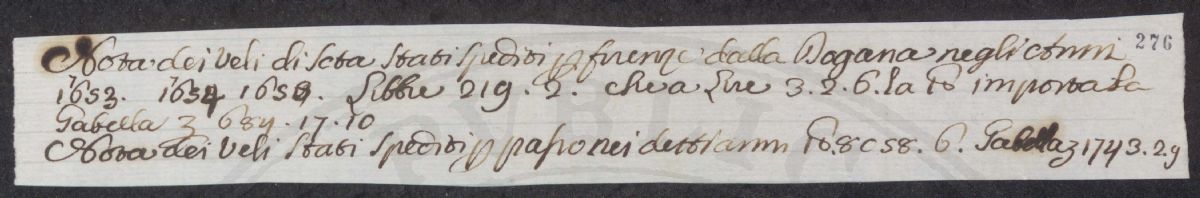 Nota dei Veli di Seta Stati spediti p firenze dalla Dogana negli Anni 276
1653. 1654 1655. Libbre 219. 2. che a Lire 3. 2. 6. la lb importa la
Gabella 684. 17. 10
Nota dei Veli Stati Spediti p passo nei detti anni lb. 8058. 6. Gabella 1743. 2. 9